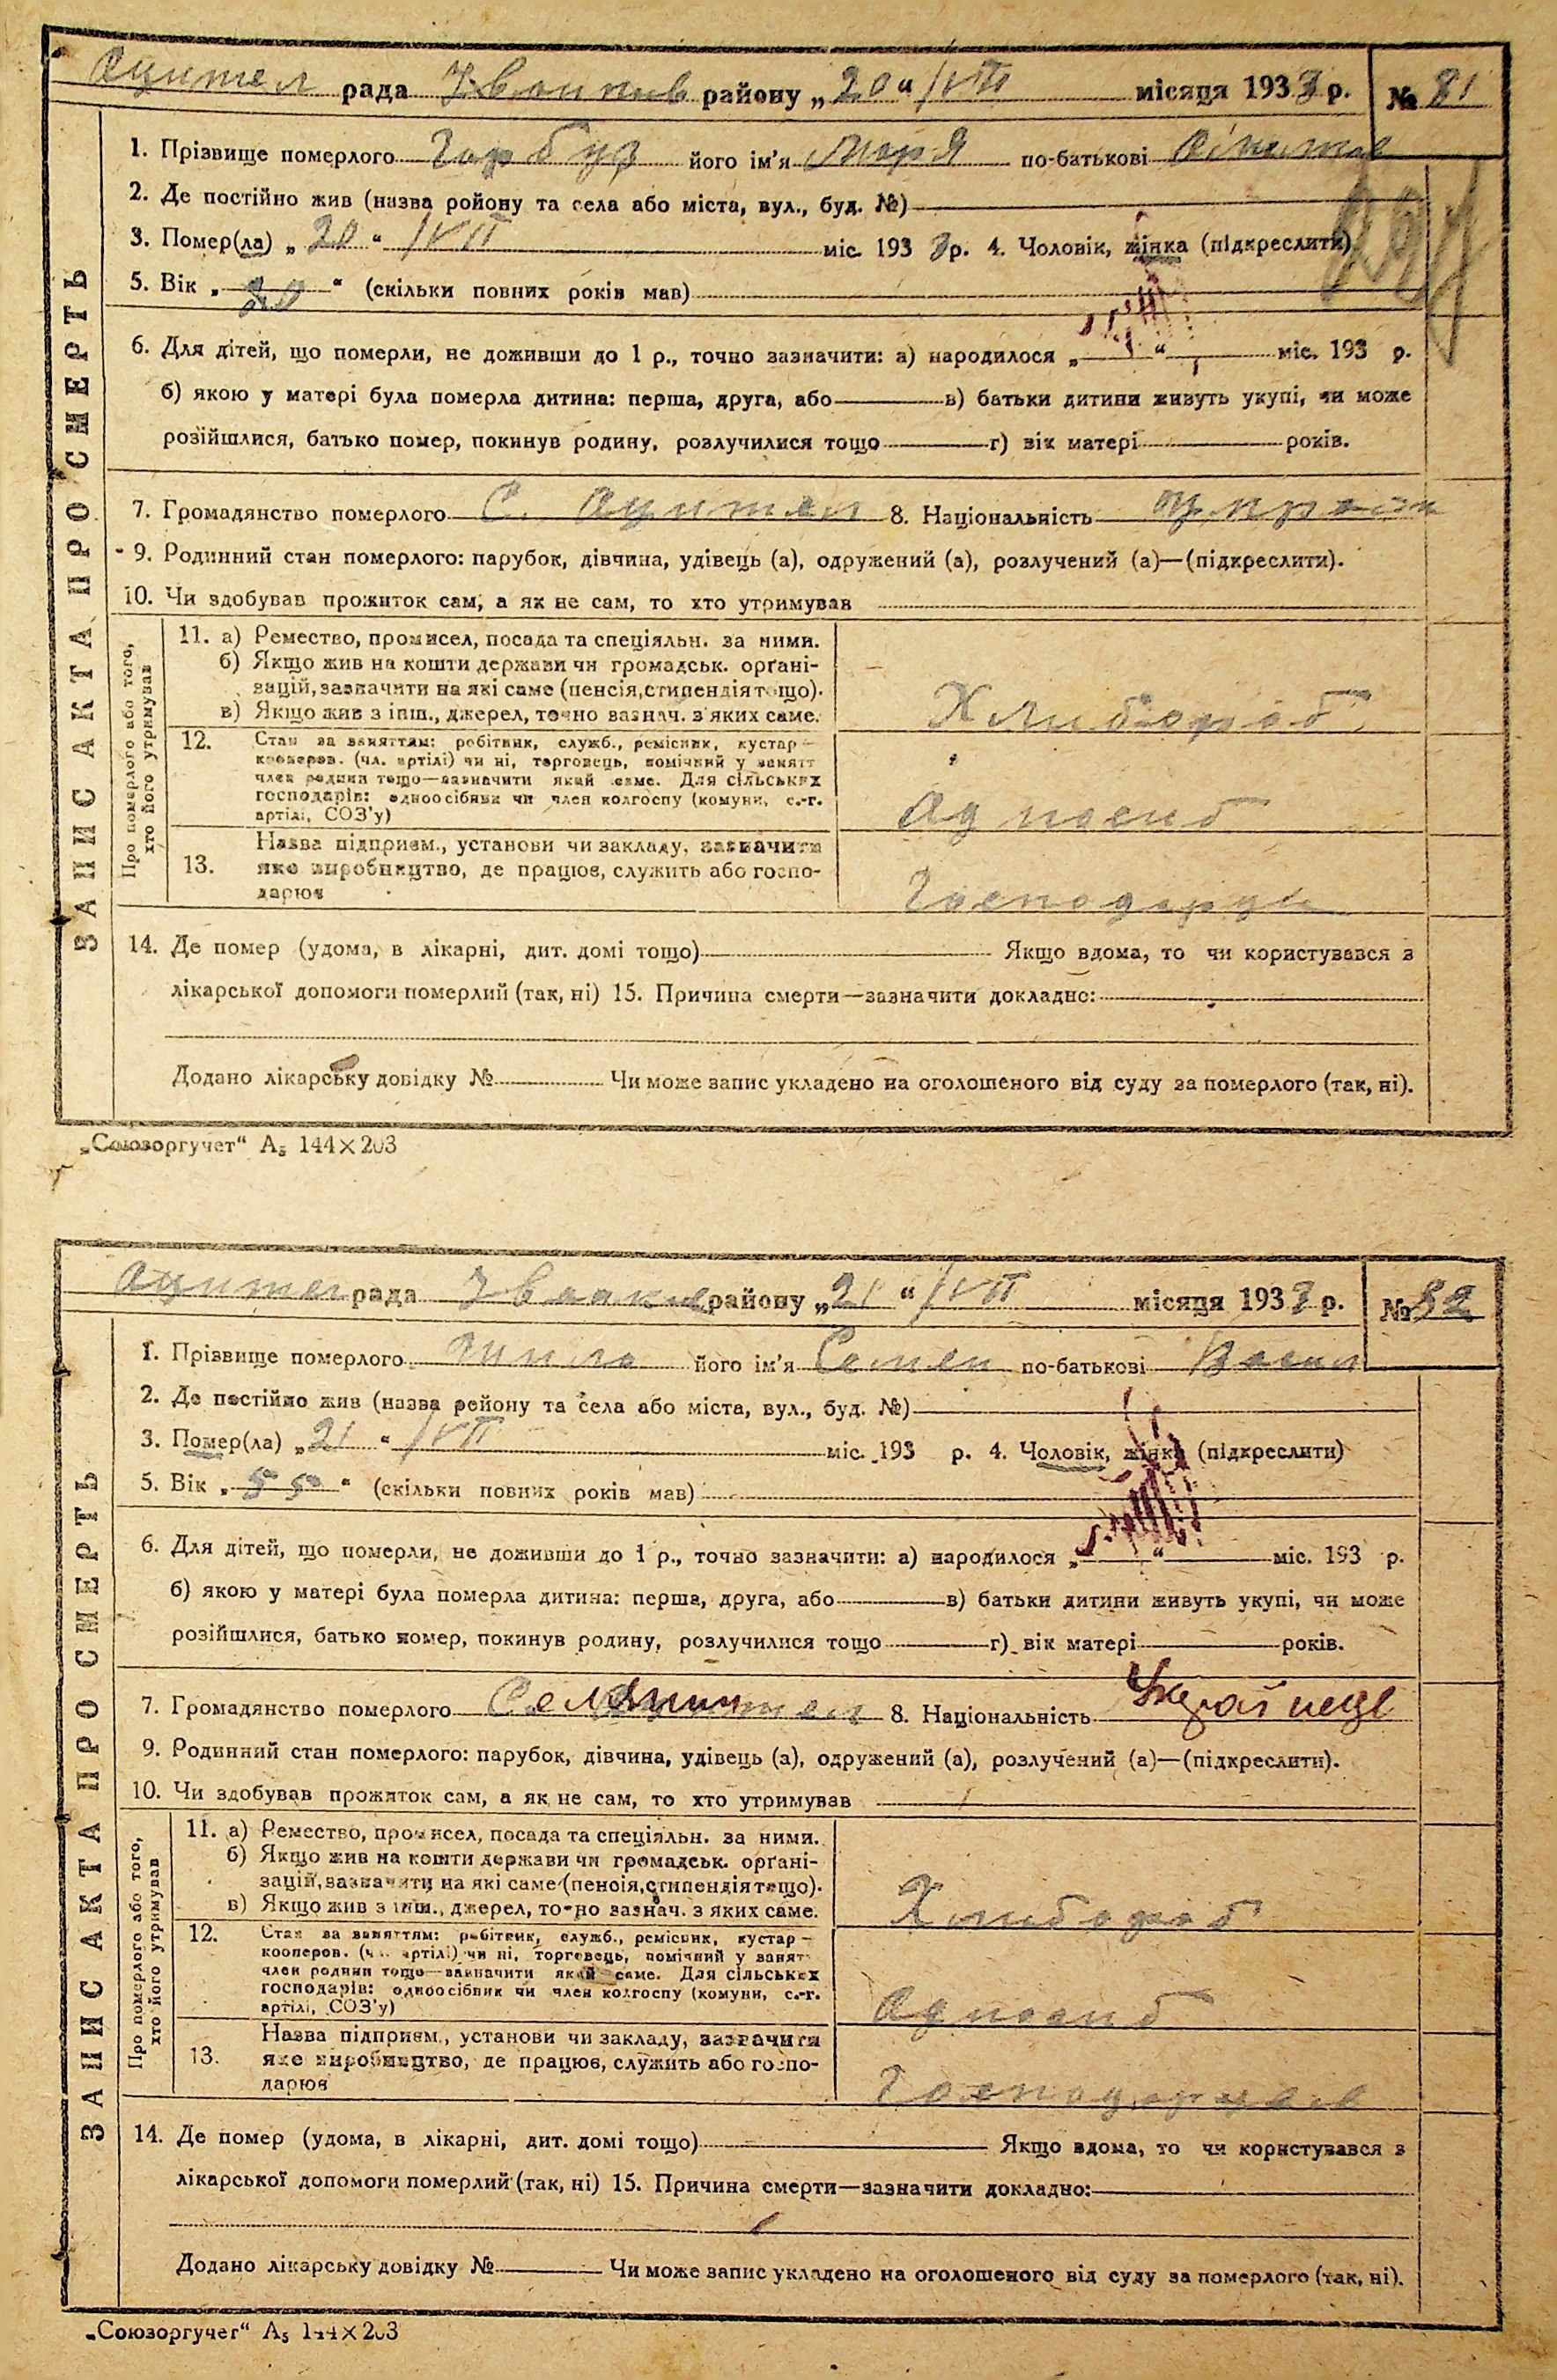 Оцител рада району „20“ /VII місяця 1933 р. № 81
1. Прізвище померлого Гарбуз його ім'я Марія по-батькові
2. Де постійно жив (назва ройону та села або міста, вул., буд. №)
3. Помер(ла) „20“ /VII міс. 1933 р. 4. Чоловік, жінка (підкреслити)
5. Вік „20“ (скільки повних років мав)
6. Для дітей, що померли, не доживши до 1 р., точно зазначити: а) народилося „ “ міс. 193 р.
б) якою у матері була померла дитина: перша, друга, або в) батьки дитини живуть укупі, чи може
розійшлися, батько помер, покинув родину, розлучилися тощо г) вік матері років.
7. Громадянство померлого С. Оцител 8. Національність
9. Родинний стан померлого: парубок, дівчина, удівець (а), одружений (а), розлучений (а)—(підкреслити).
10. Чи здобував прожиток сам, а як не сам, то хто утримував
ЗАПИС АКТА ПРО СМЕРТЬ
Про померлого або того, хто його утримував
11. а) Ремество, промисел, посада та спеціяльн. за ними.
б) Якщо жив на кошти держави чи громадськ. орґані-
зацій, зазначити на які саме (пенсія, стипендія тощо).
в) Якщо жив з інш., джерел, точно зазнач. з яких саме. Хлибороб
12. Стан за заняттям: робітник, служб., ремісник, кустар—
кооперов. (чл. артілі) чи ні, торговець, помічний у занятт
член родини тощо—зазначити який саме. Для сільських
господарів: одноосібник чи член колгоспу (комуни, с.-г.
артілі, СОЗ'у) Адносиб
13. Назва підприєм., установи чи закладу, зазначити
яке виробництво, де працює, служить або госпо-
дарює
14. Де помер (удома, в лікарні, дит. домі тощо) Якщо вдома, то чи користувався з
лікарської допомоги померлий (так, ні) 15. Причина смерти—зазначити докладно:
Додано лікарську довідку № Чи може запис укладено на оголошеного від суду за померлого (так, ні).
„Союзоргучет“ А5 144×203
Оцител рада району „21“ /VII місяця 1933 р. № 82
1. Прізвище померлого його ім'я Семен по-батькові Васил
2. Де постійно жив (назва ройону та села або міста, вул., буд. №)
3. Помер(ла) „21“ /VII міс. 193 р. 4. Чоловік, жінка (підкреслити)
5. Вік „55“ (скільки повних років мав)
6. Для дітей, що померли, не доживши до 1 р., точно зазначити: а) народилося „ “ міс. 193 р.
б) якою у матері була померла дитина: перша, друга, або в) батьки дитини живуть укупі, чи може
розійшлися, батько помер, покинув родину, розлучилися тощо г) вік матері років.
7. Громадянство померлого 8. Національність Украйнець
9. Родинний стан померлого: парубок, дівчина, удівець (а), одружений (а), розлучений (а)—(підкреслити).
10. Чи здобував прожиток сам, а як не сам, то хто утримував
ЗАПИС АКТА ПРО СМЕРТЬ
Про померлого або того, хто його утримував
11. а) Ремество, промисел, посада та спеціяльн. за ними.
б) Якщо жив на кошти держави чи громадськ. орґані-
зацій, зазначити на які саме (пенсія, стипендія тощо).
в) Якщо жив з інш., джерел, точно зазнач. з яких саме. Хлибороб
12. Стан за заняттям: робітник, служб., ремісник, кустар—
кооперов. (чл. артілі) чи ні, торговець, помічний у занятт
член родини тощо—зазначити який саме. Для сільських
господарів: одноосібник чи член колгоспу (комуни, с.-г.
артілі, СОЗ'у) Адносиб
13. Назва підприєм., установи чи закладу, зазначити
яке виробництво, де працює, служить або госпо-
дарює
14. Де помер (удома, в лікарні, дит. домі тощо) Якщо вдома, то чи користувався з
лікарської допомоги померлий (так, ні) 15. Причина смерти—зазначити докладно:
Додано лікарську довідку № Чи може запис укладено на оголошеного від суду за померлого (так, ні).
„Союзоргучет“ А5 144×203